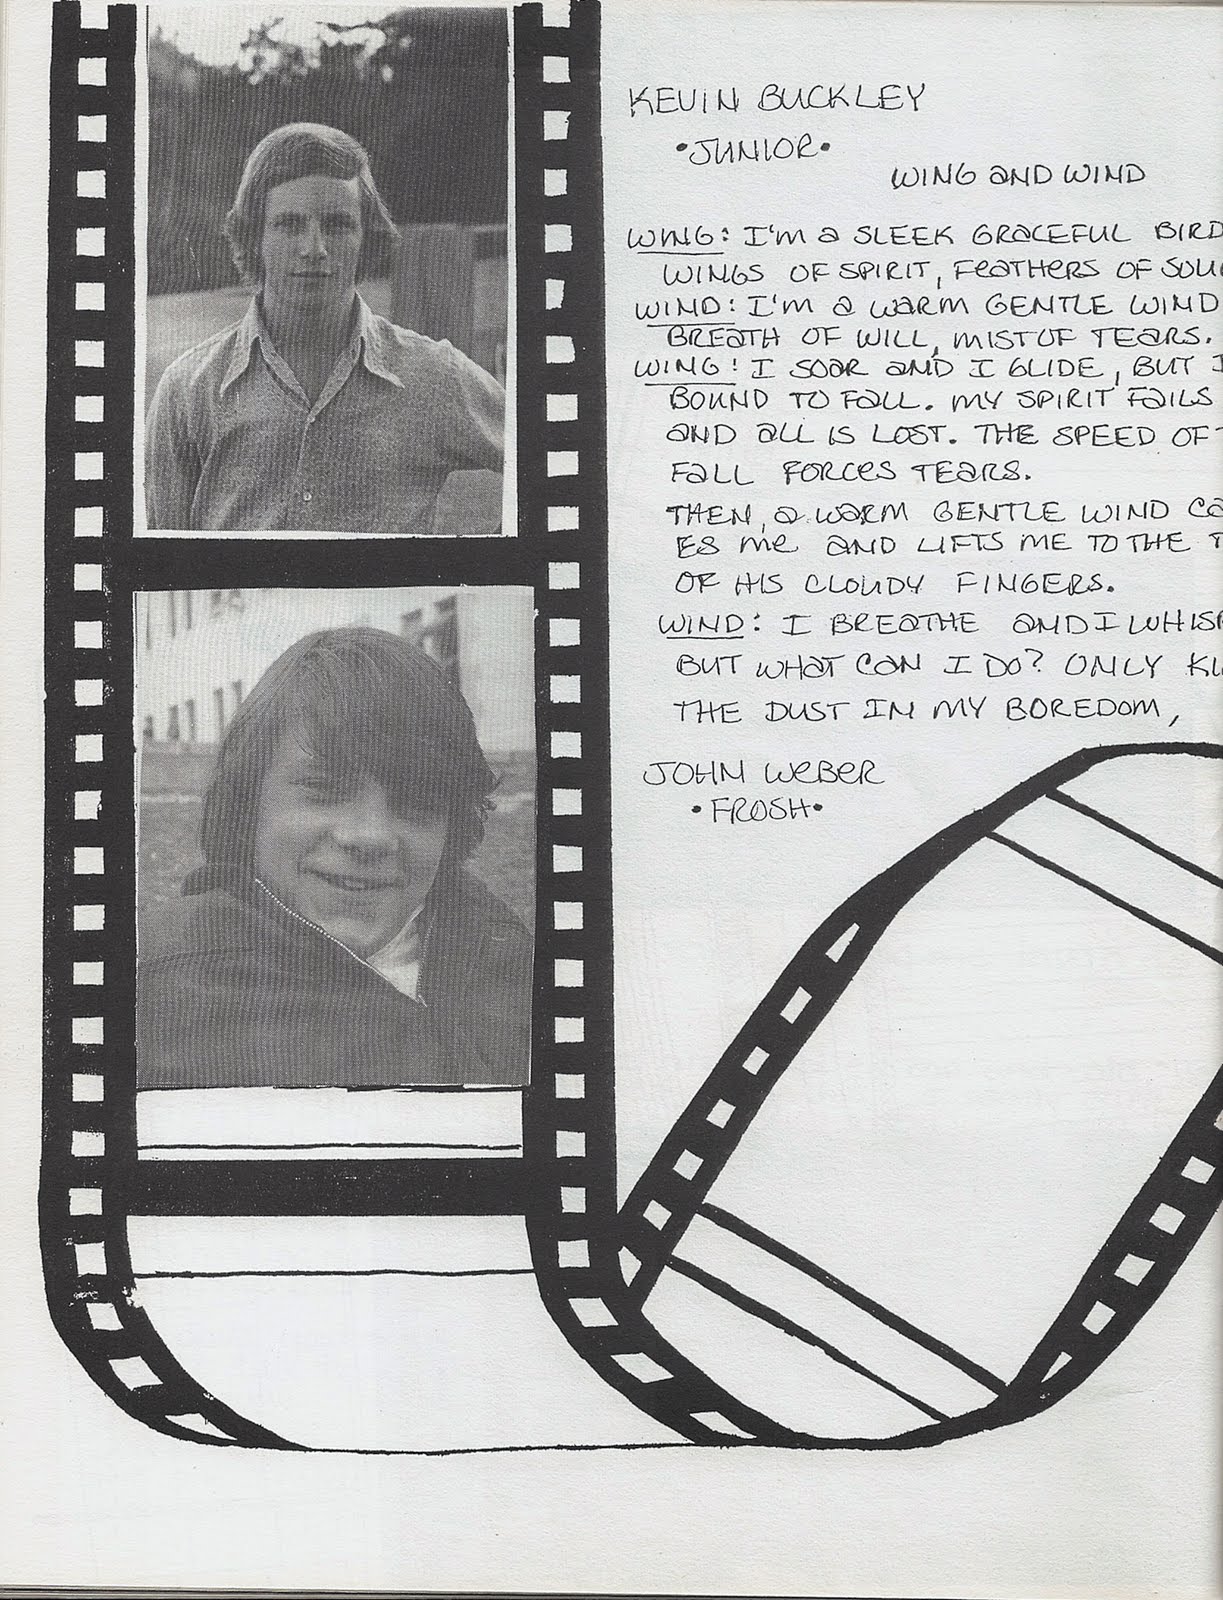 KEVIN BUCKLEY
•JUNIOR•
WING AND WIND
WING: I'M A SLEEK GRACEFUL BIRD
WINGS OF SPIRIT, FEATHERS OF
WIND: I'M A WARM GENTLE WIND
BREATH OF WILL, MIST OF TEARS.
WING: I SOAR AND I GLIDE, BUT
BOUND TO FALL. MY SPIRIT FAILS
AND ALL IS LOST. THE SPEED OF
FALL FORCES TEARS.
THEN, A WARM GENTLE WIND
ES ME AND LIFTS ME TO THE
OF HIS CLOUDY FINGERS.
WIND: I BREATHE AND I
BUT WHAT CAN I DO? ONLY
THE DUST IN MY BOREDOM,
JOHN WEBER
•FROSH•